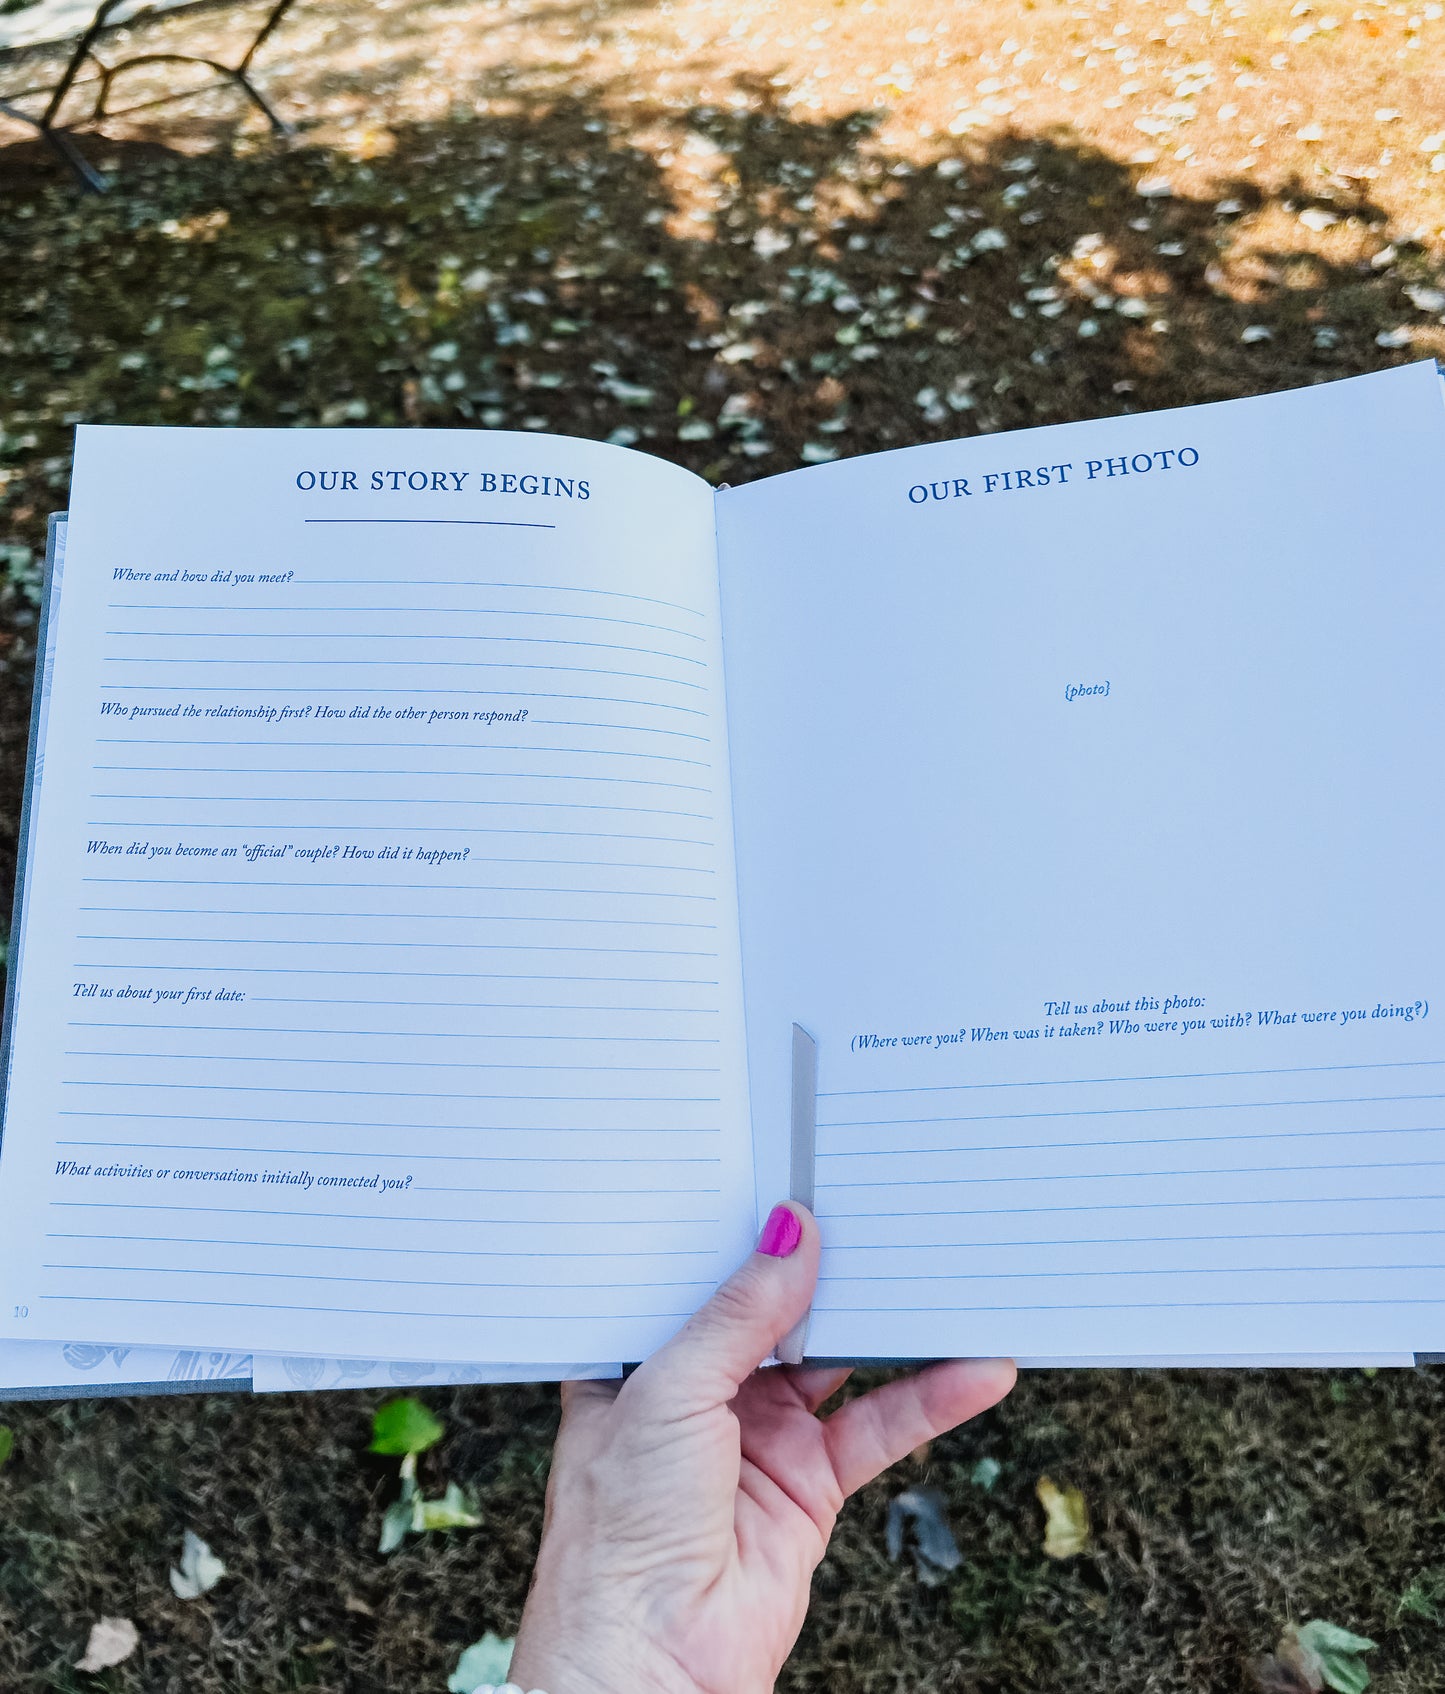 OUR STORY BEGINS
Where and how did you meet?
Who pursued the relationship first? How did the other person respond?
When did you become an “official” couple? How did it happen?
Tell us about your first date:
What activities or conversations initially connected you?
10
OUR FIRST PHOTO
{photo}
Tell us about this photo:
(Where were you? When was it taken? Who were you with? What were you doing?)